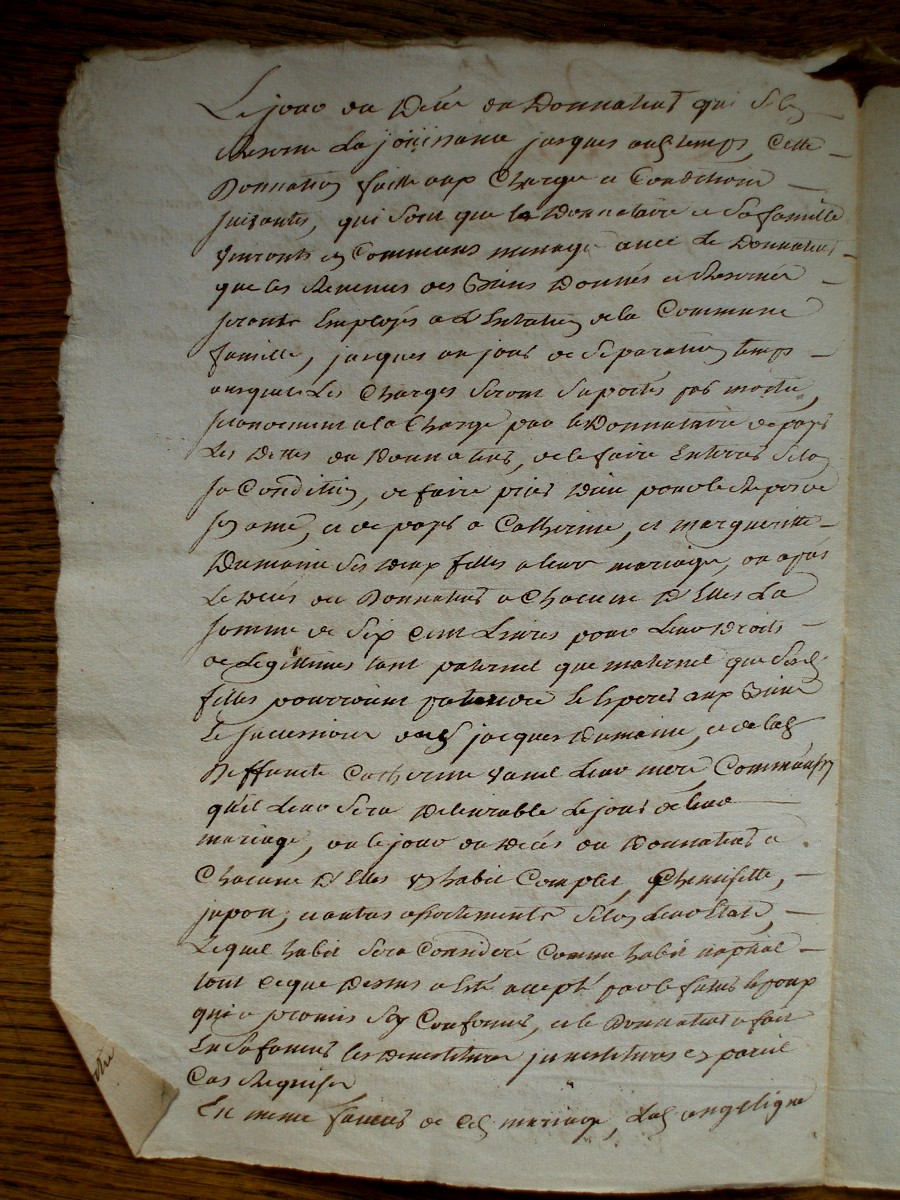 Le jour du Décé du Donnateur qui s'en
Reserve La joüissance jusques aud. temps, Cette
Donnation faitte aux Charges et Conditions
suivantes, qui sont que le Donnataire et sa famille
vivront en Commun menage avec Le Donnateur
que les Revenus des Biens Donnés et Reservés
seronts Employés a L'Entretien de la Commune
famille, jusques au jour de Separation temps
auquel Les Charges seront suportés par moitié,
a la Charge par le Donnataire de payer
Les Dettes du Donnateur, de le faire Enterrer selon
sa Condition, de faire prier Dieu pour le Repos de
son ame, et de payer a Catherine, et margueritte
Dumaine ses Deux filles a leur mariage, ou apres
Le Decés du Donnateur a Chacune D'Elles La
somme de Six Cent Livres pour Leur Droits
de Legitimes tant paternel que maternel que Sesd.
filles pourroient pretendre et Esperer aux Biens
et successions dud. jacques Dumaine, et de lad.
Deffuncte Catherine Leur mere, Comm'aussy
qu'il Leur sera Delivrable Le jour de leur
mariage, ou le jour du Decés du Donnateur a
Chacune D'Elles un habit Complet, Chemisette,
jupon, et autres assortiments selon Leur Etat,
Lequel habit sera Consideré Comme habit nuptial
tout Ceque Dessus a Eté accepté par le futur Epoux
qui a promis s'y Conformer, et le Donnateur a fait
En sa faveur les Devestitures investitures en pareil
Cas Requises
En meme faveur de Ced. mariage, Lad. angelique